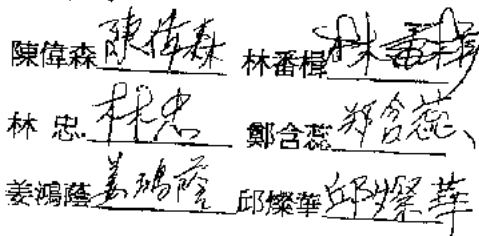 陳偉森 陳偉森 林番楫 林番楫
林 忠 林忠 鄭含蕊 郑含蕊
姜鴻蔭 姜鴻蔭 邱燦華 邱燦華